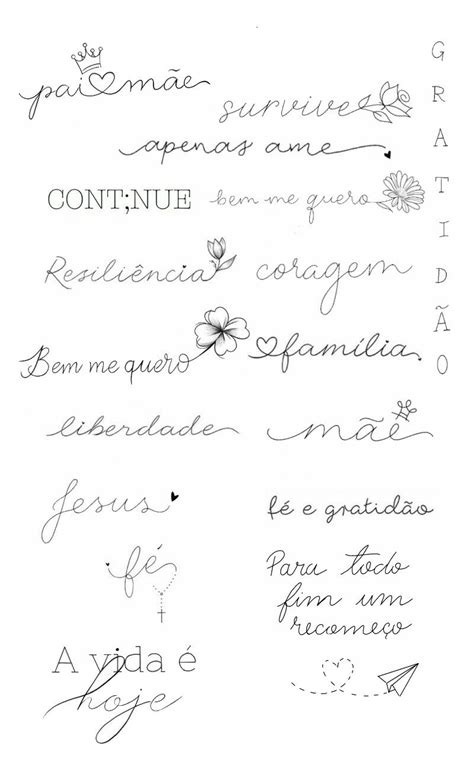 pai mãe
survive
apenas ame
CONT;NUE
bem me quero
GRATIDÃO
Resiliência
coragem
Bem me quero
família
liberdade
mãe
Jesus
fé e gratidão
fé
Para todo
fim um
recomeço
A vida é
hoje